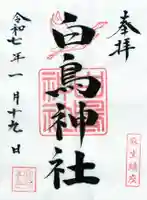 奉拝
白鳥神社
令和七年一月十九日